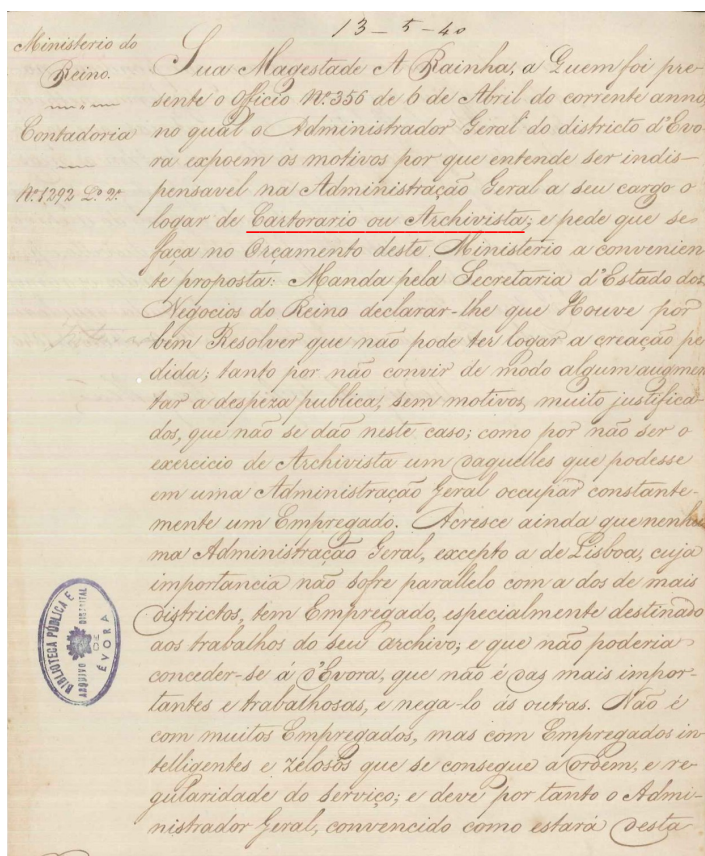 13-5-40
Ministerio do
Reino.
Contadoria
Nº 1292 Lº 2º
Sua Magestade A Rainha, a Quem foi pre-
sente o Officio Nº 356 de 6 de Abril do corrente anno,
no qual o Administrador Geral do districto d'Evo-
ra expoem os motivos por que entende ser indis-
pensavel na Administração Geral a seu cargo o
logar de Cartorario ou Archivista; e pede que se
faça no Orçamento deste Ministerio a convenien
te proposta: Manda pela Secretaria d'Estado dos
Negocios do Reino declarar-lhe que Houve por
bem Resolver que não pode ter logar a creação pe
dida; tanto por não convir de modo algum augmen
tar a despeza publica, sem motivos, muito justifica-
dos, que não se dão neste caso; como por não ser o
exercicio de Archivista um daquelles que podesse
em uma Administração Geral occupar constante-
mente um Empregado. Acresce ainda que nenhu
ma Administração Geral, excepto a de Lisboa, cuja
importancia não sofre parallelo com a dos de mais
districtos, tem Empregado, especialmente destinado
aos trabalhos do seu archivo; e que não poderia
conceder-se á d'Evora, que não é das mais impor-
tantes e trabalhosas, e nega-lo ás outras. Não é
com muitos Empregados, mas com Empregados in-
telligentes e zelosos que se consegue a ordem, e re-
gularidade do serviço; e deve por tanto o Admi-
nistrador Geral, convencido como estará desta
BIBLIOTECA PÚBLICA E
ARQUIVO DISTRITAL
DE
ÉVORA